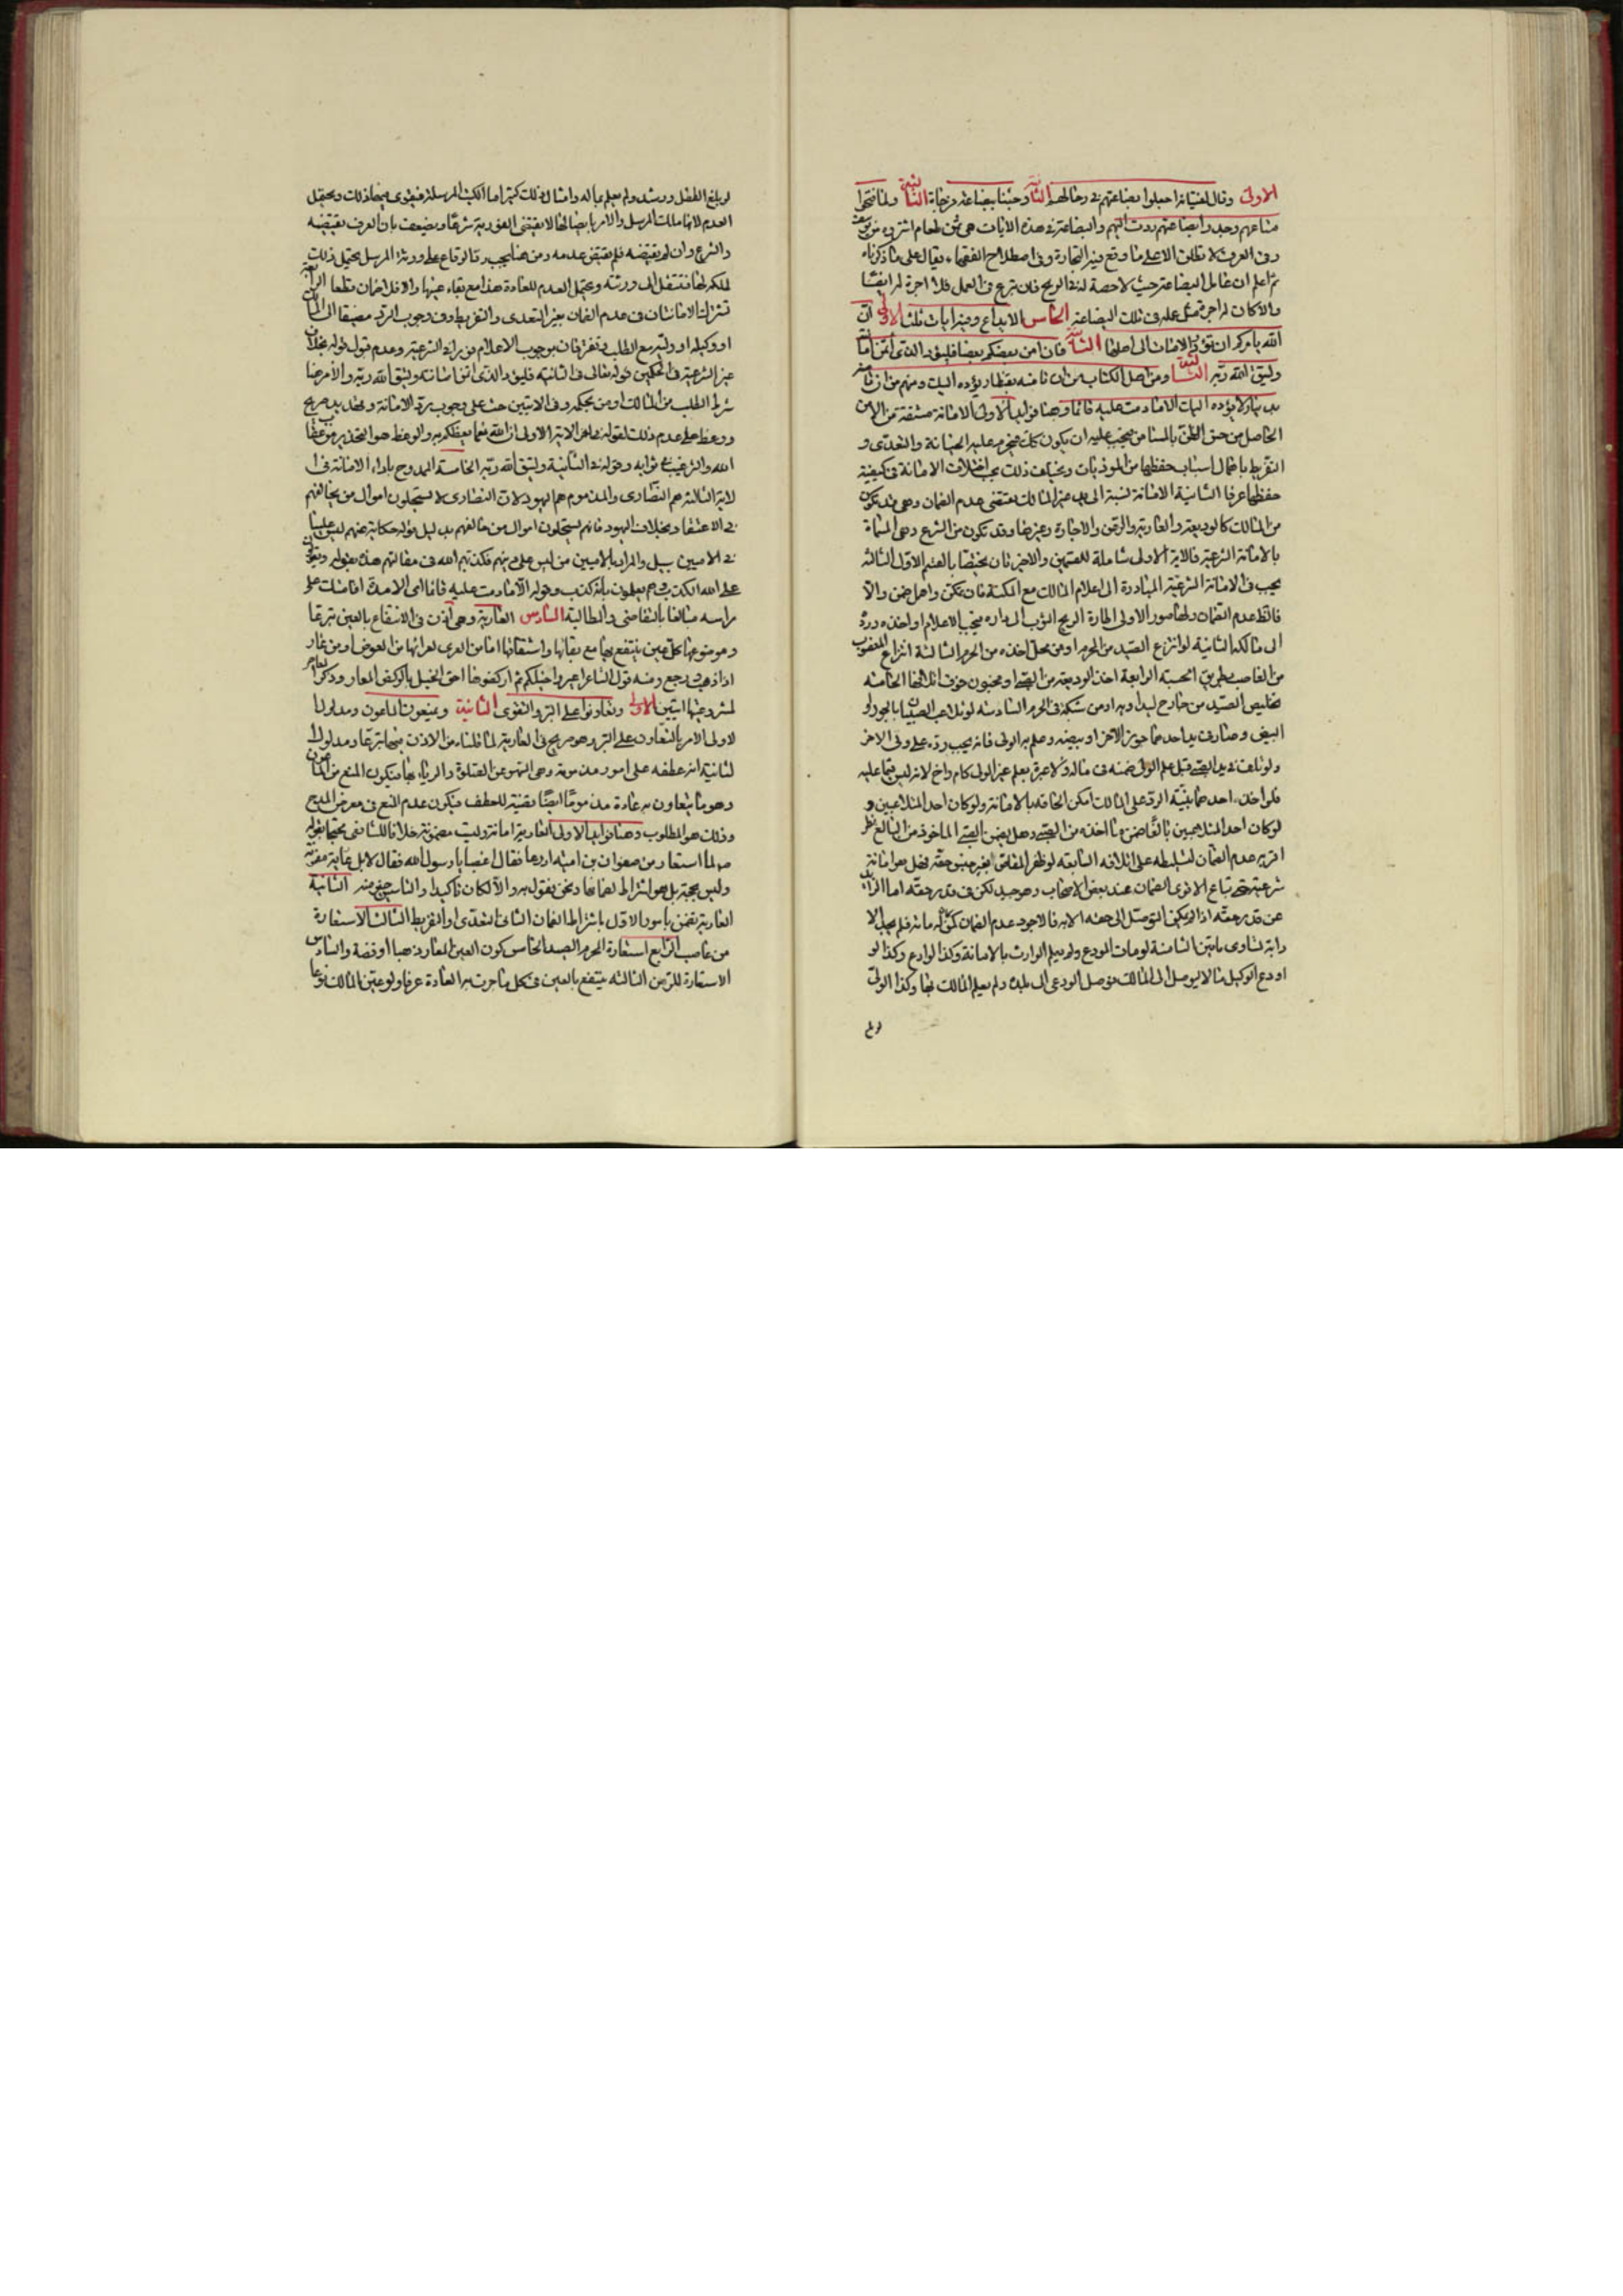 الاولى وقال لفتيانه اجعلوا بضاعتهم في رحالهم الثانية وجئنا ببضاعة مزجاة الثالثة ولما فتحوا
متاعهم وجدوا بضاعتهم ردت اليهم والبضاعة في هذه الايات هي ثمن لطعام اشتروه من يوسف
وفي العرف لا تطلق الا على ما وقع فيه التجارة وفي اصطلاح الفقهاء يقال على ما ذكرناه
ثم اعلم ان عامل البضاعة حيث لا حصة له في الربح فان تبرع في العمل فلا اجرة له ايضا
والا كان له اجرة مثل عمله في تلك البضاعة الخامس الايداع وفيه ايات ثلث الاولى ان
الله يامركم ان تؤدوا الامانات الى اهلها الثانية فان امن بعضكم بعضا فليؤد الذي اؤتمن امانته
وليتق الله ربه الثالثة ومن اهل الكتاب من ان تامنه بقنطار يؤده اليك ومنهم من ان تامنه
بدينار لا يؤده اليك الا ما دمت عليه قائما وهنا فوائد الاولى الامانة مشتقة من الامن
الحاصل من حسن الظن بالمستامن فيجب عليه ان يكون كذلك فيحرم عليه الخيانة والتعدي و
التفريط باهمال اسباب حفظها من الموذيات ويختلف ذلك بحسب اختلاف الامانة في كيفية
حفظها عرفا الثانية الامانة نسبة الى يد غير المالك يقتضي عدم الضمان وهي قد تكون
من المالك كالوديعة والعارية والرهن والاجارة وغيرها وقد تكون من الشرع وهي المسماة
بالامانة الشرعية فالاية الاولى شاملة للقسمين والاخيرتان يختصان بالقسم الاول الثالثة
يجب في الامانة الشرعية المبادرة الى اعلام المالك مع المكنة فان تمكن واهمل ضمن والا
فالظ عدم الضمان ولها صور الاولى اطارة الريح الثوب الى داره فيجب الاعلام او اخذه ورده
الى مالكه الثانية لو انتزع الصيد من المحرم او من محل اخذه من الحرم الثالثة انتزاع المغصوب
من الغاصب بطريق الحسبة الرابعة اخذ الوديعة من الصبي او مجنون خوف اتلافها الخامسة
تخليص الصيد من جارح ليداويه او من شبكة في الحرم السادسة لو تلاعب الصبيان بالجوز او
البيض وصار في يد احدهما جوز الاخر او بيضه وعلم به الولي فانه يجب رده على ولي الاخر
ولو تلف في يد الصبي قبل علم الولي ضمنه في ماله ولا عبرة بعلم غير الولي كام واخ لانه ليس قيما عليه
فلو اخذه احدهما بنية الرد على المالك امكن الحاقه بالامانة ولو كان احد المتلاعبين و
لو كان احد المتلاعبين بالغا ضمن ما اخذه من الصبي وهل يضمن الصبي الماخوذ من البالغ نظر
اقربه عدم الضمان لتسليطه على اتلافه السابعة لو ظفر المقاص بغير جنس حقه فهل هو امانة
شرعية حتى تباع الاقوى الضمان عند بعض الاصحاب وهو جيد لكن في قدر حقه اما الزائد
عن قدر حقه اذا لم يكن التوصل الى حقه الا به فالاجود عدم الضمان
الثامنة لو مات المودع ولم يعلم الوارث بالامانة وكذا لو
اودع الوكيل مالا يوصل الى المالك فوصل الودعي الى بلده ولم يعلم المالك بها وكذا الولي
لو لم
لو بلغ الطفل ورشد ولم يعلم بماله وامثال ذلك كثير اما الكتب المرسلة فيقوى فيها ذلك ويحتمل
العدم لانها ملك المرسل والامر بايصالها لا يقتضي الفورية شرعا ويضعف بان العرف يقتضيه
والشرع وان لم يقتضه فلم يقتض عدمه ومن هنا يجب رد الرقاع على ورثة المرسل يحتمل ذلك
لملكه لها فتنتقل الى ورثته ويحتمل العدم للعادة هذا مع بقاء عينها والا فلا ضمان قطعا الرابعة
تشترك الامانتان في عدم الضمان بغير التعدي والتفريط وفي وجوب الرد مضيقا الى المالك
او وكيله او وليه مع الطلب وتفترقان بوجوب الاعلام فورا في الشرعية وعدم قبول قوله بخلاف
غير الشرعية في الحكمين قوله تعالى في الثانية فليؤد الذي اؤتمن امانته وليتق الله ربه والامر هنا
شرط الطلب من المالك او من بحكمه وفي الايتين حث على وجوب رد الامانة وتهديد صريح
ووعظ على عدم ذلك لقوله في اخر الاية الاولى ان الله نعما يعظكم به والوعظ هو التحذير من عقاب
الله والترغيب في ثوابه وقوله في الثانية وليتق الله ربه الخامسة الممدوح باداء الامانة في ا
لاية الثالثة هم النصارى والمذموم هم اليهود لان النصارى لا يستحلون اموال من يخالفهم
في الاعتقاد بخلاف اليهود فانهم يستحلون اموال من خالفهم بدليل قوله حكاية عنهم ليس علينا
في الاميين سبيل والمراد بالاميين من ليس على دينهم فكذبهم الله في مقالتهم هذه بقوله ويقولون
على الله الكذب وهم يعلمون بانه كذب وقوله الا ما دمت عليه قائما اي الا مدة اقامتك على
راسه مبالغا بالتقاضي والمطالبة السادس العارية وهي اذن في الانتفاع بالعين تبرعا
وموضوعها كل عين ينتفع بها مع بقائها واشتقاقها اما من العري لعرائها من العوض او من عار
اذا ذهب ورجع ومنه قول الشاعر اعيروا خيلكم ثم اركضوها احق الخيل بالركض المعار وذكر المعاصر
لمشروعيتها ايتين الاولى وتعاونوا على البر والتقوى الثانية ويمنعون الماعون ومدلول ا
لاولى الامر بالتعاون على البر وهو صريح في العارية لما قلناه من الاذن فيها تبرعا ومدلول ا
لثانية انه عطفه على امور مذمومة وهي السهو عن الصلوة والرياء بها فيكون المنع من الماعون
وهو ما يتعاون به عادة مذموما ايضا بقضية للعطف فيكون عدم المنع في معرض المدح
وذلك هو المطلوب وهنا فوايد الاولى العارية امانة وليست مضمونة خلافا للشافعي محتجا بقوله
لما استعار من صفوان بن امية ادرعا فقال اغصبا يا رسول الله فقال لا بل عارية مضمونة
وليس بحجة بل هو اشتراط لضمانها ونحن نقول به والا لكان تاكيدا والتاسيس خير منه الثانية
العارية تضمن بامور الاول باشتراط الضمان الثاني التعدي او التفريط الثالث الاستعارة
من غاصب الرابع استعارة المحرم الصيد الخامس كون العين المعارة ذهبا او فضة والسادس
الاستعارة للرهن الثالثة ينتفع بالعين في كل ما جرت به العادة عرفا ولو عين المالك نوعا